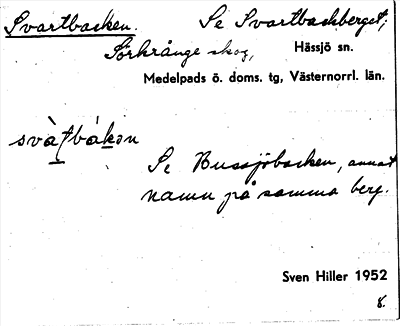 Svartbacken. Se Svartbackberget,
Sörkrånge skog, Hässjö sn.
Medelpads ö. doms. tg, Västernorrl. län.
svàʈbákən
Se Bussjöbacken, annat
namn på samma berg.
Sven Hiller 1952
8.